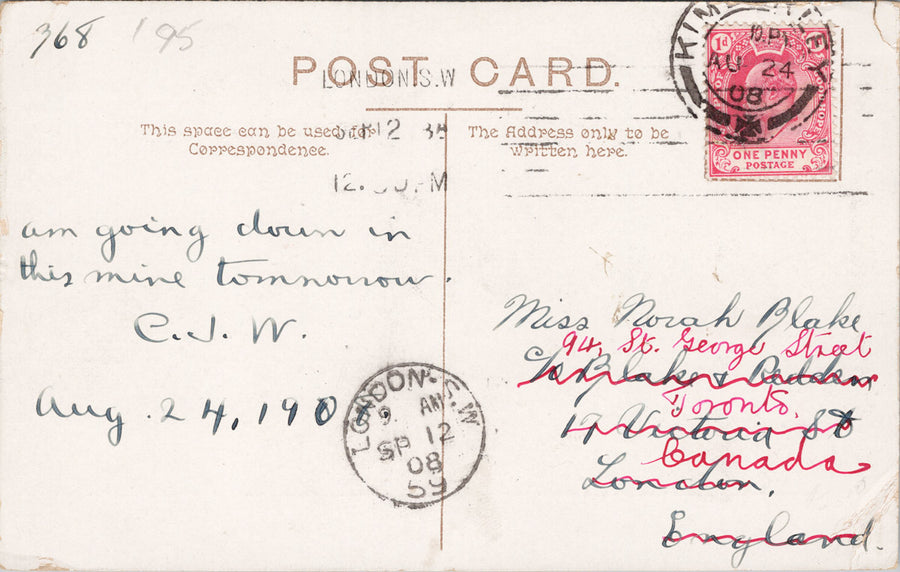 368 195
POST CARD.
LONDON. S.W
12
12. PM
This space can be used for
Correspondence.
The Address only to be
written here.
KIMBERLEY
10. PM
AU 24
08
1d
OF GOOD HOPE
ONE PENNY
POSTAGE
am going down in
this mine tomnorrow.
C.J.W.
Aug. 24, 1908
LONDON. S.W
9. AM
SP 12
08
59
Miss Norah Blake
94, St. George Street
c/o Blake & Redden
Toronto,
17 Victoria St
Canada
London,
England.